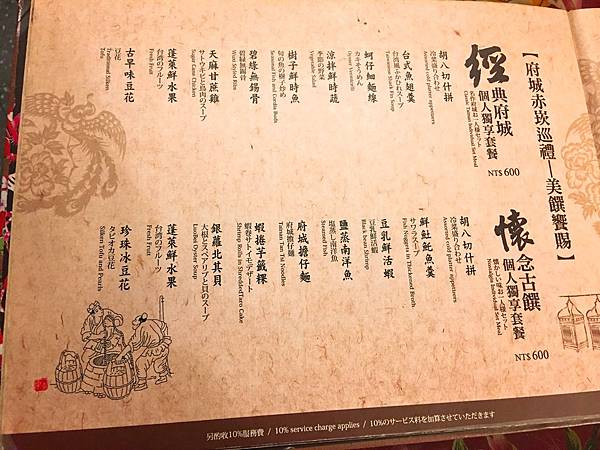 【府城赤崁巡禮—美饌饗賜】
經典府城
個人獨享套餐
名作府城お一人様セット
Classic Tainan Individual Set Meal
NT$ 600
胡八切什拼
冷菜盛り合わせ
Assorted cold platter appetizers
台式魚翅羹
台湾風ふかひれスープ
Taiwanese Shark Fin Soup
蚵仔細麵線
カキそうめん
Oyster Vermicelli
涼拌鮮時蔬
季節の野菜
Vegetable Salad
樹子鮮時魚
旬の魚の樹子炒め
Seasonal Fish and Cordia Buds
碧綠無錫骨
碧緑無錫骨
Wuxi Styled Ribs
天麻甘蔗雞
サトウキビと鳥肉のスープ
Sugar Cane Chicken
蓬萊鮮水果
台湾のフルーツ
Fresh Fruit
古早味豆花
豆花
Traditional Silken Tofu
懷念古饌
個人獨享套餐
懐かしい味お一人様セット
Nostalgic Individual Set Meal
NT$ 600
胡八切什拼
冷菜盛り合わせ
Assorted cold platter appetizers
鮮𩵚魠魚羹
サワラスープ
Fish Nuggets in Thickened Broth
豆乳鮮活蝦
豆乳鮮活蝦
Black Bean Shrimp
鹽蒸南洋魚
塩蒸し南洋魚
Steamed Fish
府城擔仔麵
府城擔仔麺
Tainan Tan Tsi Noodles
蝦捲芋籤粿
蝦巻サトイモデザート
Shrimp Rolls in Shredded Taro Cake
銀蘿北其貝
大根とスペアリブと貝のスープ
Luobei Oyster Soup
蓬萊鮮水果
台湾のフルーツ
Fresh Fruit
珍珠冰豆花
タピオカ豆花
Silken Tofu and Pearls
另酌收10%服務費 / 10% service charge applies / 10%のサービス料を加算させていただきます